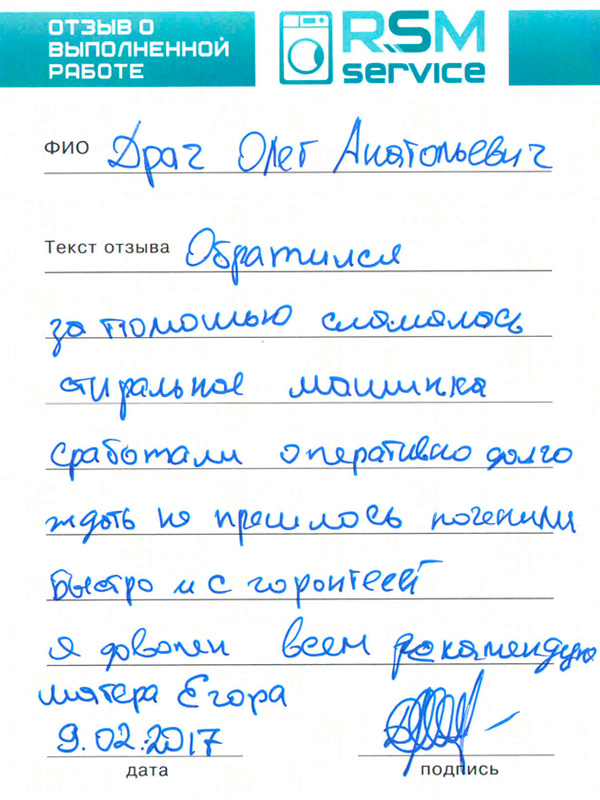 ОТЗЫВ О
ВЫПОЛНЕННОЙ
РАБОТЕ
RSM
service
ФИО Драч Олег Анатольевич
Текст отзыва Обратился
за помошью сламалась
стиральное машинка
сработали оперативно долго
ждать не прешлось поченили
быстро и с горонтеей
я доволен всем рекамендую
мастера Егора
9.02.2017
дата подпись